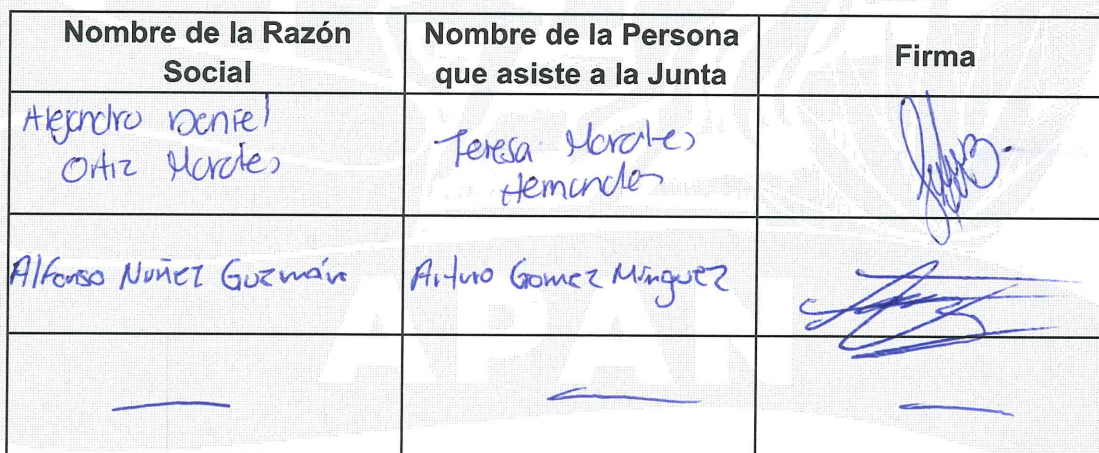 Nombre de la Razón
Social
Nombre de la Persona
que asiste a la Junta
Firma
Alejandro Daniel
Ortiz Morales
Teresa Morales
Hernandez
Alfonso Nuñez Guzmán
Arturo Gomez Minguez
APAN